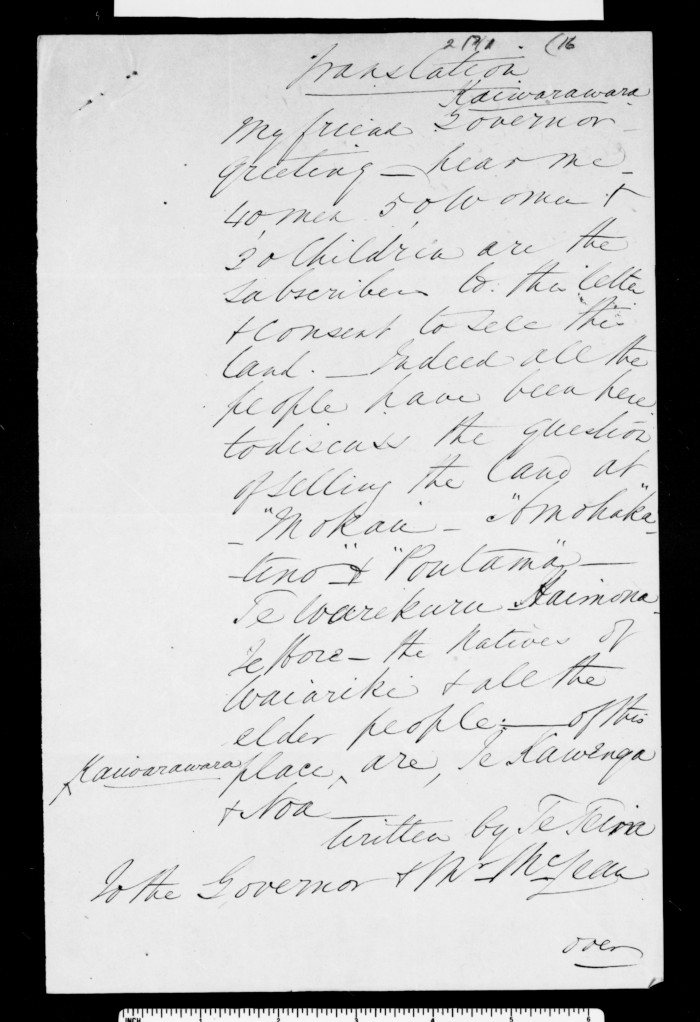 (16
Translation
Kaiwarawara
My friend Governor
greeting — hear me —
40 men 50 Women &
30 Children are the
subscribers to this letter
& consent to sell this
land. — Indeed all the
people have been here
to discuss the question
of selling the land at
- "Mokau" - "Amohaka-
-tino" & "Poutama" —
Te Warekuru Haimona
Te Hore — the Natives of
Waiariki & all the
elder people; — of this
Kaiwarawara
place, are, Te Kawenga
& Noa —
Written by Te Teira
To the Governor & Mr McLean
over
INCH 1 2 3 4 5 6